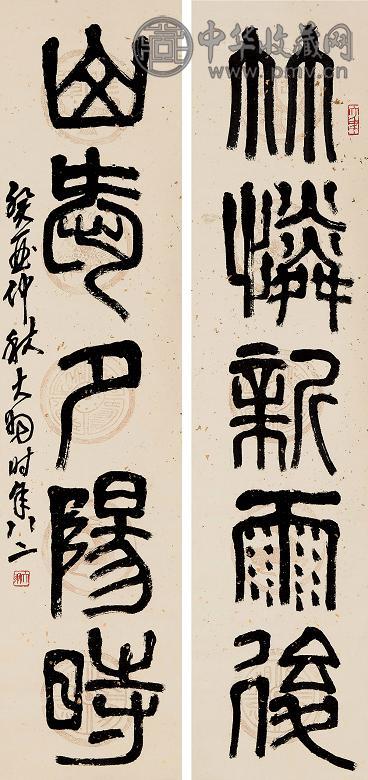 中华收藏网
www.pmv.cn
竹憐新雨後
山愛夕陽時
癸酉仲秋大羽时年八二